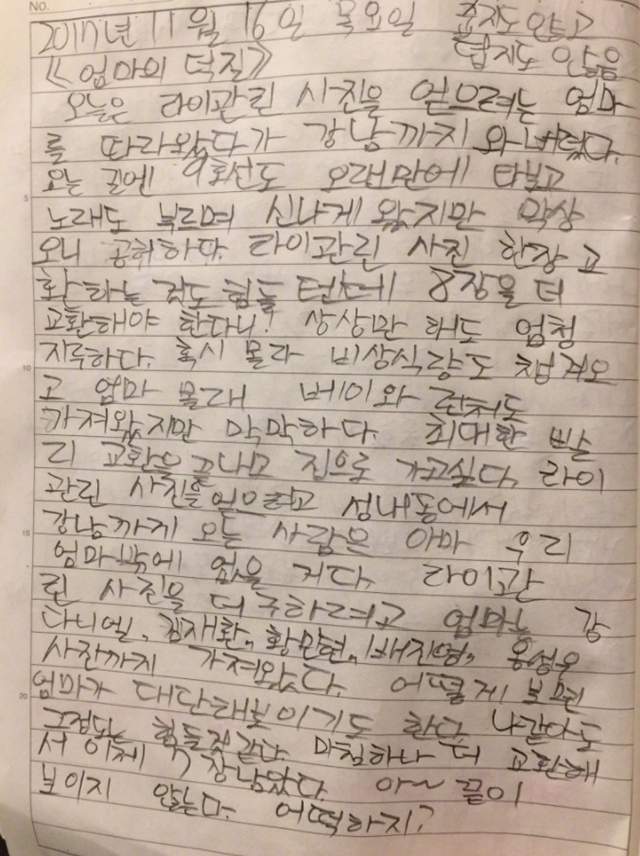 No.
2017년 11월 16일 목요일 춥지도 않고
덥지도 않음
《엄마의 덕질》
오늘은 라이관린 사진을 얻으려는 엄마
를 따라왔다가 강남까지 와버렸다.
오는 길에 9호선도 오래만에 타보고
노래도 부르며 신나게 왔지만 막상
오니 공허하다. 라이관린 사진 한장 교
환하는 것도 힘들 텐데 8장을 더
교환해야 한다니! 상상만 해도 엄청
지루하다. 혹시 몰라 비상식량도 챙겨오
고 엄마 몰래 베이와 런처도
가져왔지만 막막하다. 최대한 빨
리 교환을 끝내고 집으로 가고싶다. 라이
관린 사진을 얻으려고 성내동에서
강남까지 오는 사람은 아마 우리
엄마밖에 없을 거다. 라이관
린 사진을 더 구하려고 엄마는 강
다니엘, 김재환, 황민현, 배진영, 옹성우
사진까지 가져왔다. 어떻게 보면
엄마가 대단해보이기도 한다. 나같아도
그정도는 힘들것같다. 마침하나 더 교환해
서 이제 7장남았다. 아~ 끝이
보이지 않는다. 어떡하지?